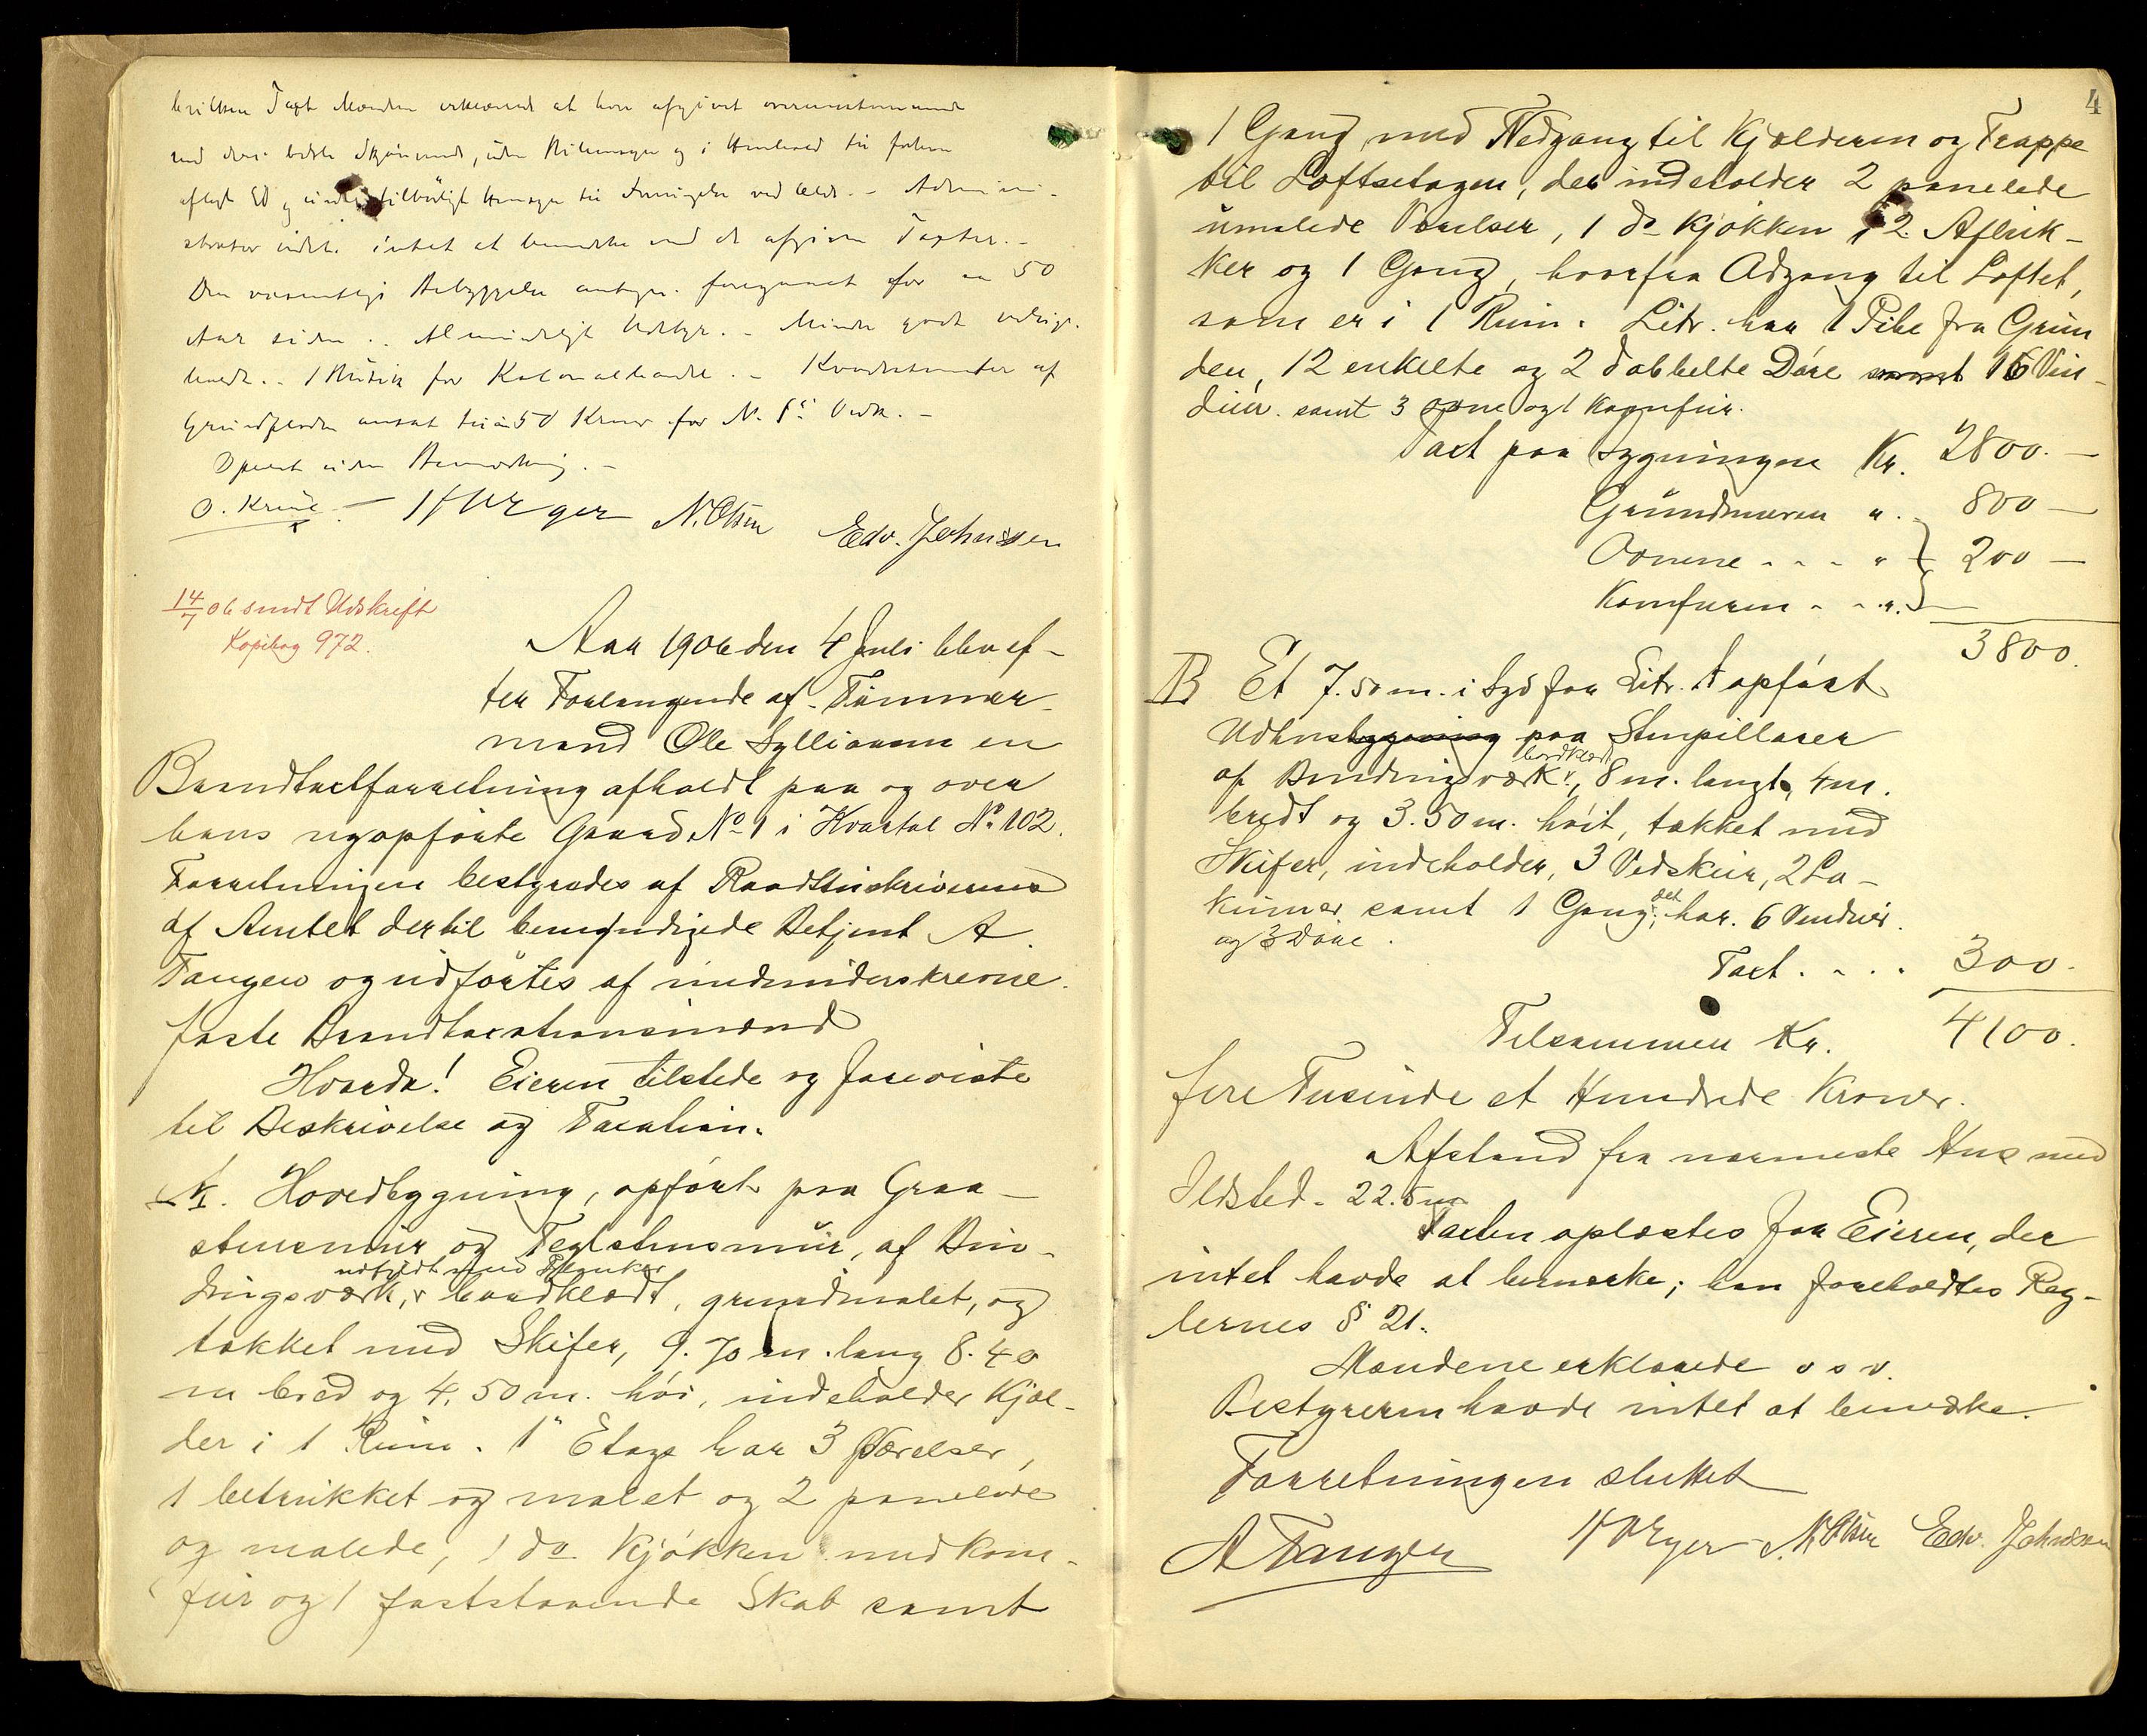 Taxt Mændene erklærende at have afgivet overensstemmende
med deres bedste Skjønnende, uden Vilkensomhelst og i Henhold til forhen
aflagt Ed og uden tilbørligt Hensyn til ved Ilds. – Admini-
strator intet at bemærke med de afgivne Taxter. –
Den væsentlige Bebyggelse antages foregaaet for ca 50
Aar siden. Almindeligt Udstyr. – Mindre godt vedlige-
holdt. – 1 Butik for Kolonialhandel. – Kvadratmeter af
Grundfladen ansat til à 50 Kroner for No 1's Vedk. –
Oplæst uden Bemærkning. –
O. Krüse N. Olsen Edv. Johnssen
14/7 06 sendt Udskrift
Kopibog 972.
Aar 1906 den 4 Juli blev ef-
ter Forlangende af Tømmer-
mand Ole Sylliaasen en
Brandtaxtforretning afholdt paa og over
hans nyopførte Gaard No 1 i Kvartal No 102.
Forretningen bestyredes af Raadstuskriverens
af Amtet dertil bemyndigede Betjent A.
Tangen og udførtes af medunderskrevne
faste Brandtaxtionsmænd
Hvorda! Eieren tilstede og foreviste
til Beskrivelse og Taxation.
A. Hovedbygning, opført paa Graa-
stensmur og Teglstensmur, af Bin-
udfyldt med Planker
dingsværk, bordklædt, grundmalet, og
tækket med Skifer, 9.70 m. lang 8.40
m bred og 4.50 m. høi, indeholder Kjæl-
der i 1 Rum. 1ste Etage har 3 Værelser,
1 betrukket og malet og 2 panelede
og malede, 1 do Kjøkken med Kom-
fur og 1 faststaaende Skab samt
4
1 Gang med Nedgang til Kjælderen og Trappe
til Loftsetagen, der indeholder 2 panelede
umalede Værelser, 1 do Kjøkken, 2 Afluk-
ker og 1 Gang, hvorfra Adgang til Loftet,
som er i 1 Rum. Litr. har 1 Pibe fra Grun
den, 12 enkelte og 2 dobbelte Døre samt 16 Vin-
duer. samt 3 ovne og 1 Komfur.
Taxt paa Bygningen Kr. 2800. –
Grundmuren " 800 –
Ovnene - - - " } 200 –
Komfuren - - "
3800.
B Et 7.50 m. i Syd for Litr. A opført
Udhusbygning paa Stenpillarer
bordklædt
af Bindingsværk, 8 m. langt, 4 m.
bredt og 3.50 m. høit, tækket med
Skifer, indeholder, 3 Vedskur, 2 Lo-
det
kumer samt 1 Gang; har 6 Vinduer
og 3 Døre.
Taxt . . . . 300.
Tilsammen Kr. 4100.
fire Tusinde et Hundrede Kroner.
Afstand fra nærmeste Hus med
Ildsted. 22.5 m
Taxten oplæstes for Eieren, der
intet havde at bemærke; han foreholdtes Reg-
lernes § 21.
Mændene erklærede o s v.
Bestyreren havde intet at bemærke.
Forretningen sluttet
A Tangen N. Olsen Edv. Johnssen